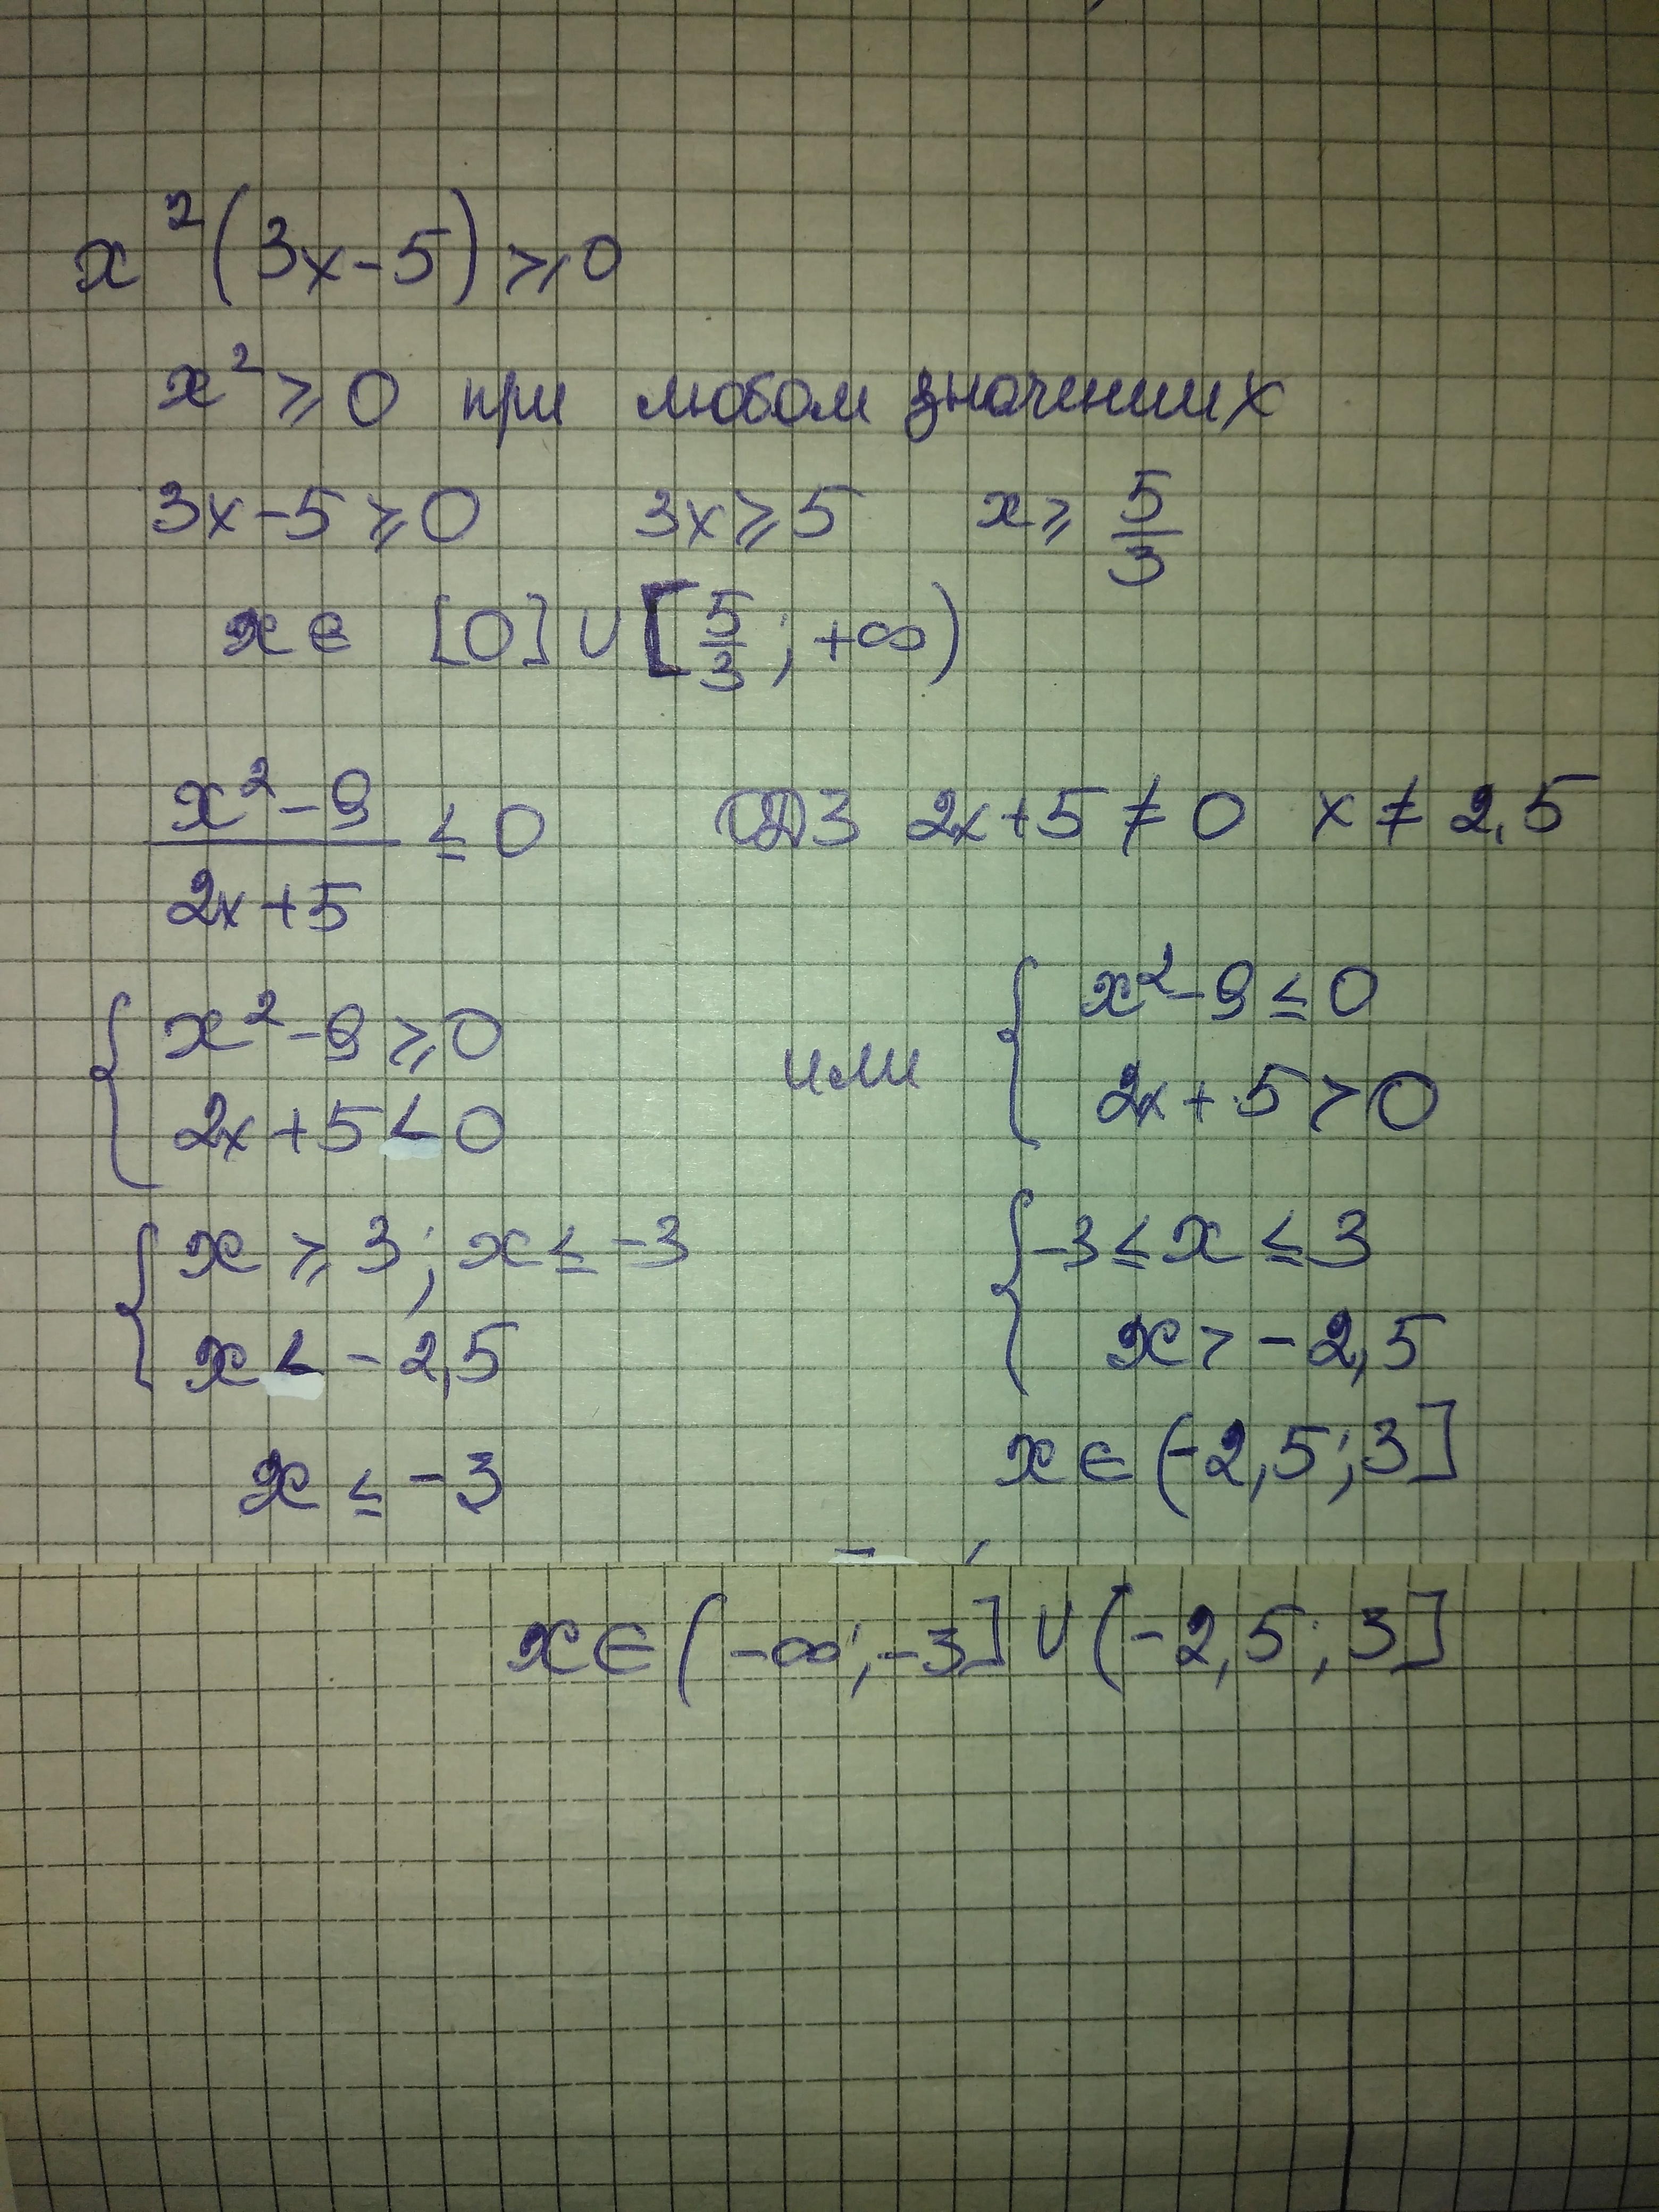 x²(3x-5)≥0
x²≥0 при любом значениих
3x-5≥0 3x≥5 x≥ 5/3
x∈ [0]∪[5/3; +∞)
(x²-9)/(2x+5) ≤ 0 ОДЗ 2x+5≠0 x≠2,5
{ x²-9≥0 2x+5<0 или { x²-9≤0 2x+5>0
{ x≥3; x≤-3 x<-2,5 { -3≤x≤3 x>-2,5
x≤-3 x∈(-2,5;3]
x∈(-∞;-3]∪(-2,5;3]